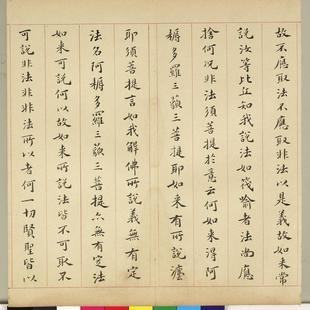 故不應取法不應取非法以是義故如來常
說汝等比丘知我說法如筏喻者法尚應
捨何况非法須菩提於意云何如來得阿
耨多羅三藐三菩提耶如來有所說法
耶須菩提言如我解佛所說義無有定
法名阿耨多羅三藐三菩提亦無有定法
如來可說何以故如來所說法皆不可取不
可說非法非非法所以者何一切賢聖皆以